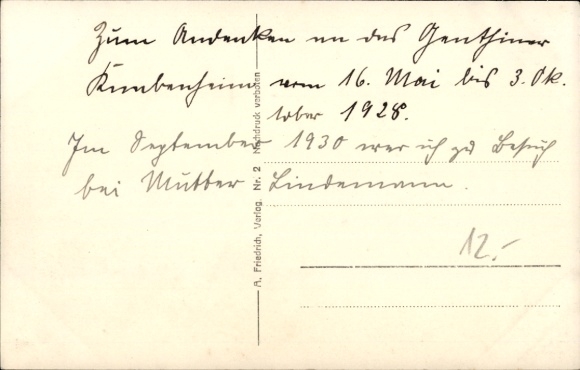 Zum Andenken an das Genthiner
Knabenheim vom 16. Mai bis 3. Ok-
tober 1928.
Im September 1930 war ich zu Besuch
bei Mutter Lindemann.
12.-
A. Friedrich, Verlag, Nr. 2 Nachdruck verboten